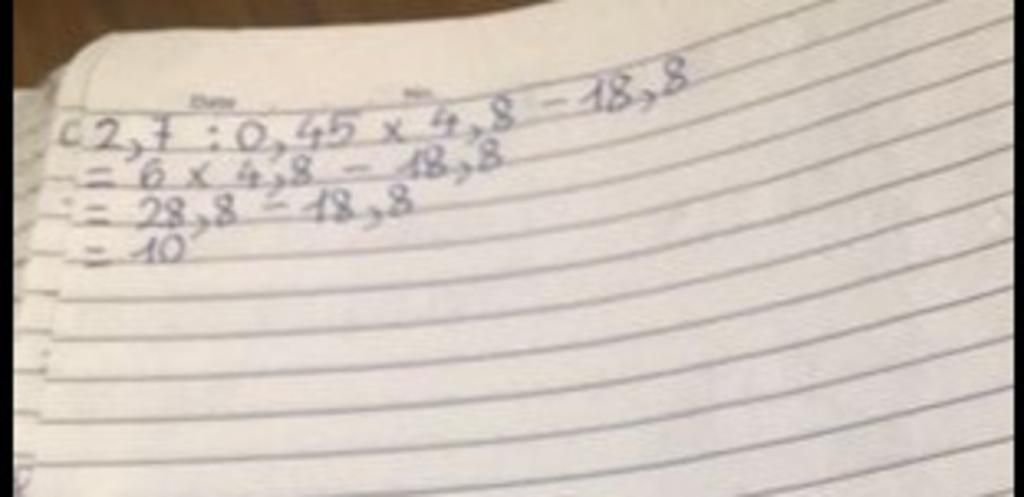 Date No.
c 2,7 : 0,45 x 4,8 - 18,8
= 6 x 4,8 - 18,8
= 28,8 - 18,8
= 10